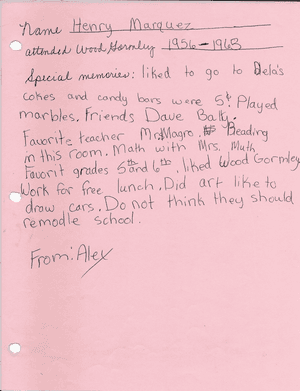 Name Henry Marquez
attended Wood Gormley 1956-1963
Special memories: liked to go to Dela's
cokes and candy bars were 5¢ Played
marbles. Friends Dave
Favorite teacher Mrs Magro. Reading
in this room. Math with Mrs. Muth
Favorit grades 5th and 6th. liked Wood Gormley
Work for free lunch. Did art like to
draw cars. Do not think they should
remodle school.
From: Alex